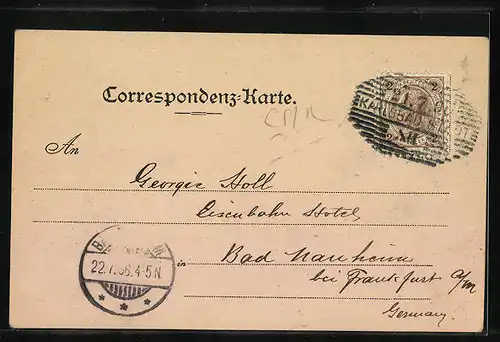 Correspondenz-Karte.
An
Georgie Holl
Eisenbahn Hotel,
in Bad Nauheim
bei Frankfurt a/m
Germany.
22.7.98.4-5N.